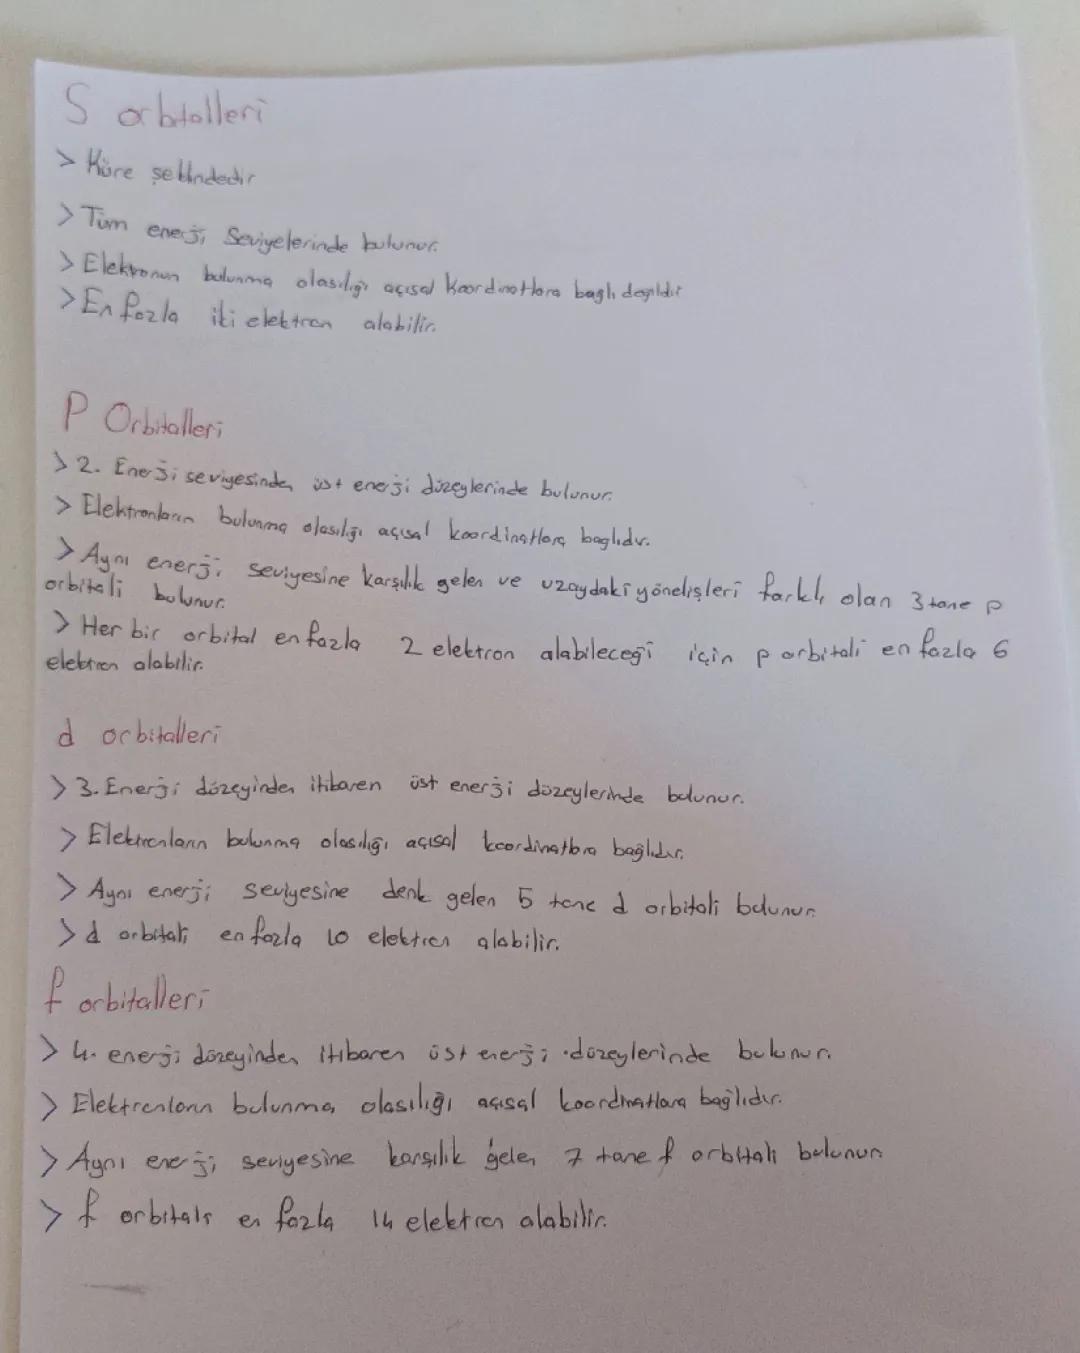 S orbitalleri
> Küre şeklindedir
> Tüm enerji Seviyelerinde bulunur.
> Elektronun bulunma olasılığı açısal koordinatlara bağlı değildir
> En fazla iki elektron alabilir.
P Orbitalleri
> 2. Enerji seviyesinden üst enerji düzeylerinde bulunur.
> Elektronların bulunma olasılığı açısal koordinatlara bağlıdır.
> Aynı enerji seviyesine karşılık gelen ve uzaydaki yönelişleri farklı olan 3 tane p
orbitali bulunur.
> Her bir orbital en fazla 2 elektron alabileceği için p orbitali en fazla 6
elektron alabilir.
d orbitalleri
> 3. Enerji düzeyinden itibaren üst enerji düzeylerinde bulunur.
> Elektronların bulunma olasılığı açısal koordinatlara bağlıdır.
> Aynı enerji seviyesine denk gelen 5 tane d orbitali bulunur.
> d orbitali en fazla 10 elektron alabilir.
f orbitalleri
> 4. enerji düzeyinden itibaren üst enerji düzeylerinde bulunur.
> Elektronların bulunma olasılığı açısal koordinatlara bağlıdır.
> Aynı enerji seviyesine karşılık gelen 7 tane f orbitali bulunur.
> f orbitali en fazla 14 elektron alabilir.